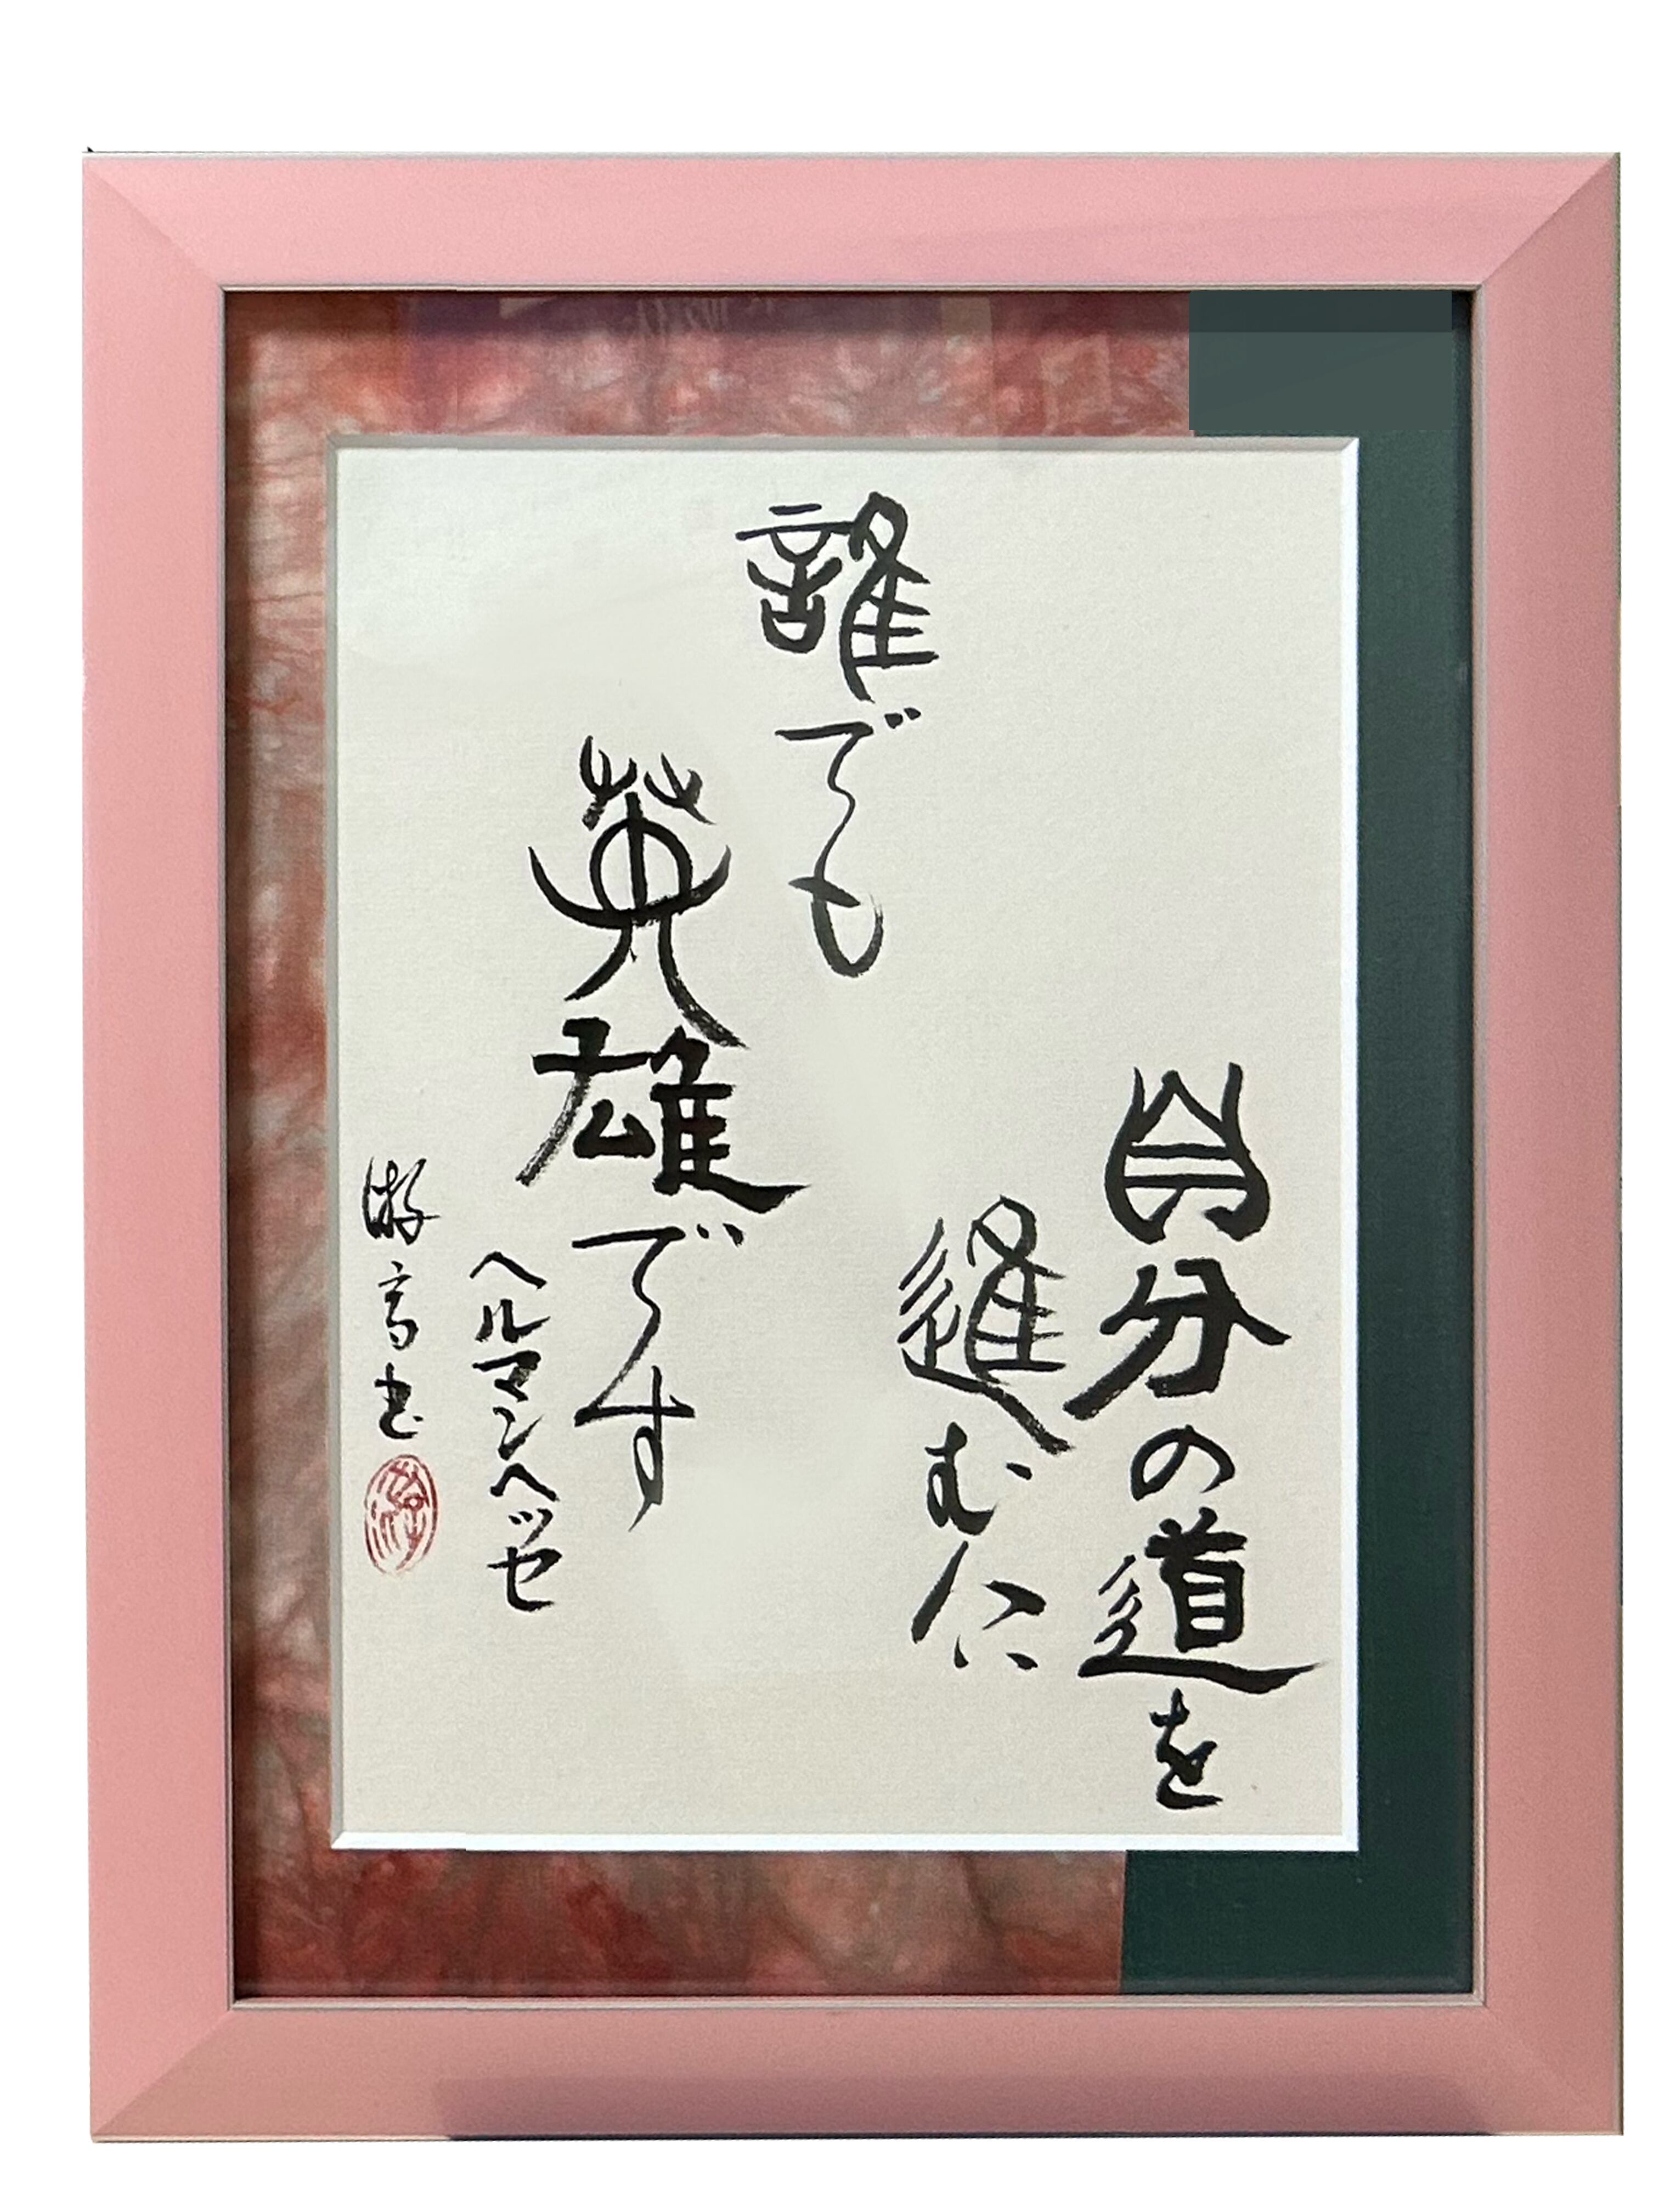 自分の道を
進む人は
誰でも
英雄です
ヘルマンヘッセ
游 書